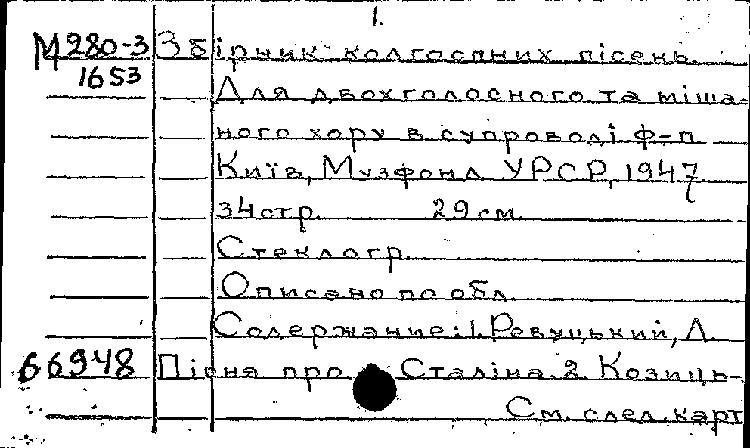 1.
М280-3 Збірник колгоспних пісень.
1653
Для двохголосного та міша-
ного хору в супроводі ф-п
Київ, Музфонд УРСР, 1947
34 стр. 29 см.
Стеклогр.
Описано по обл.
Содержание: 1. Ревуцький, Л.
66948 Пісня про Сталіна 2. Козиць-
См. след. карт